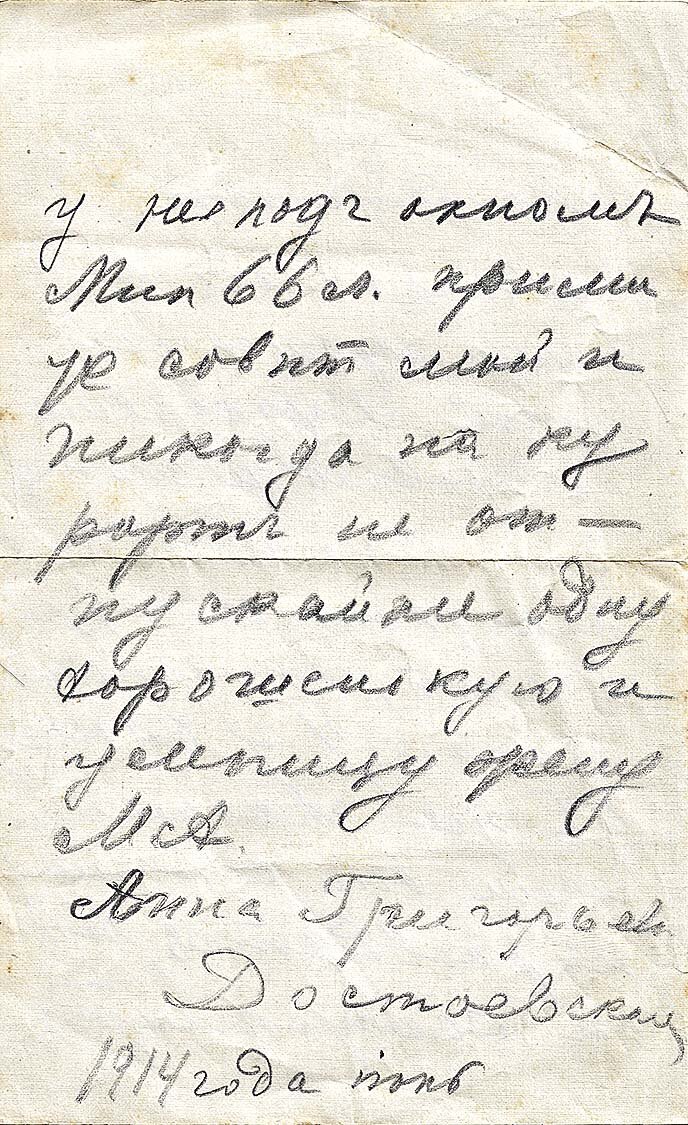 у нея подъ окномъ
Мнѣ 66 л. прими
те совѣт мой и
никогда на ку
рортъ не от—
пускайте одну
хорошенькую и
умницу
М. А.
Анна Григорьев
Достоевская
1914 года